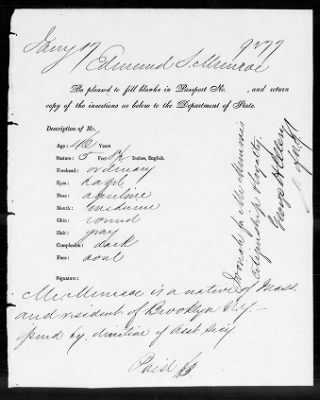 Jany 17
9277
Edmund S. Munroe
Be pleased to fill blanks in Passport No. , and return
copy of the insertions as below to the Department of State.
Description of Mr.
Age: 46 Years
Stature: 5 Feet 8½ Inches, English.
Forehead: ordinary
Eyes: hazel
Nose: aquiline
Mouth: medium
Chin: round
Hair: gray
Complexion: dark
Face: oval
Signature:
Mr Munroe is a native of Mass.
and resident of Brooklyn N.Y.
by direction of
Paid
I vouch for Mr Munroe's
citizenship & loyalty
George H